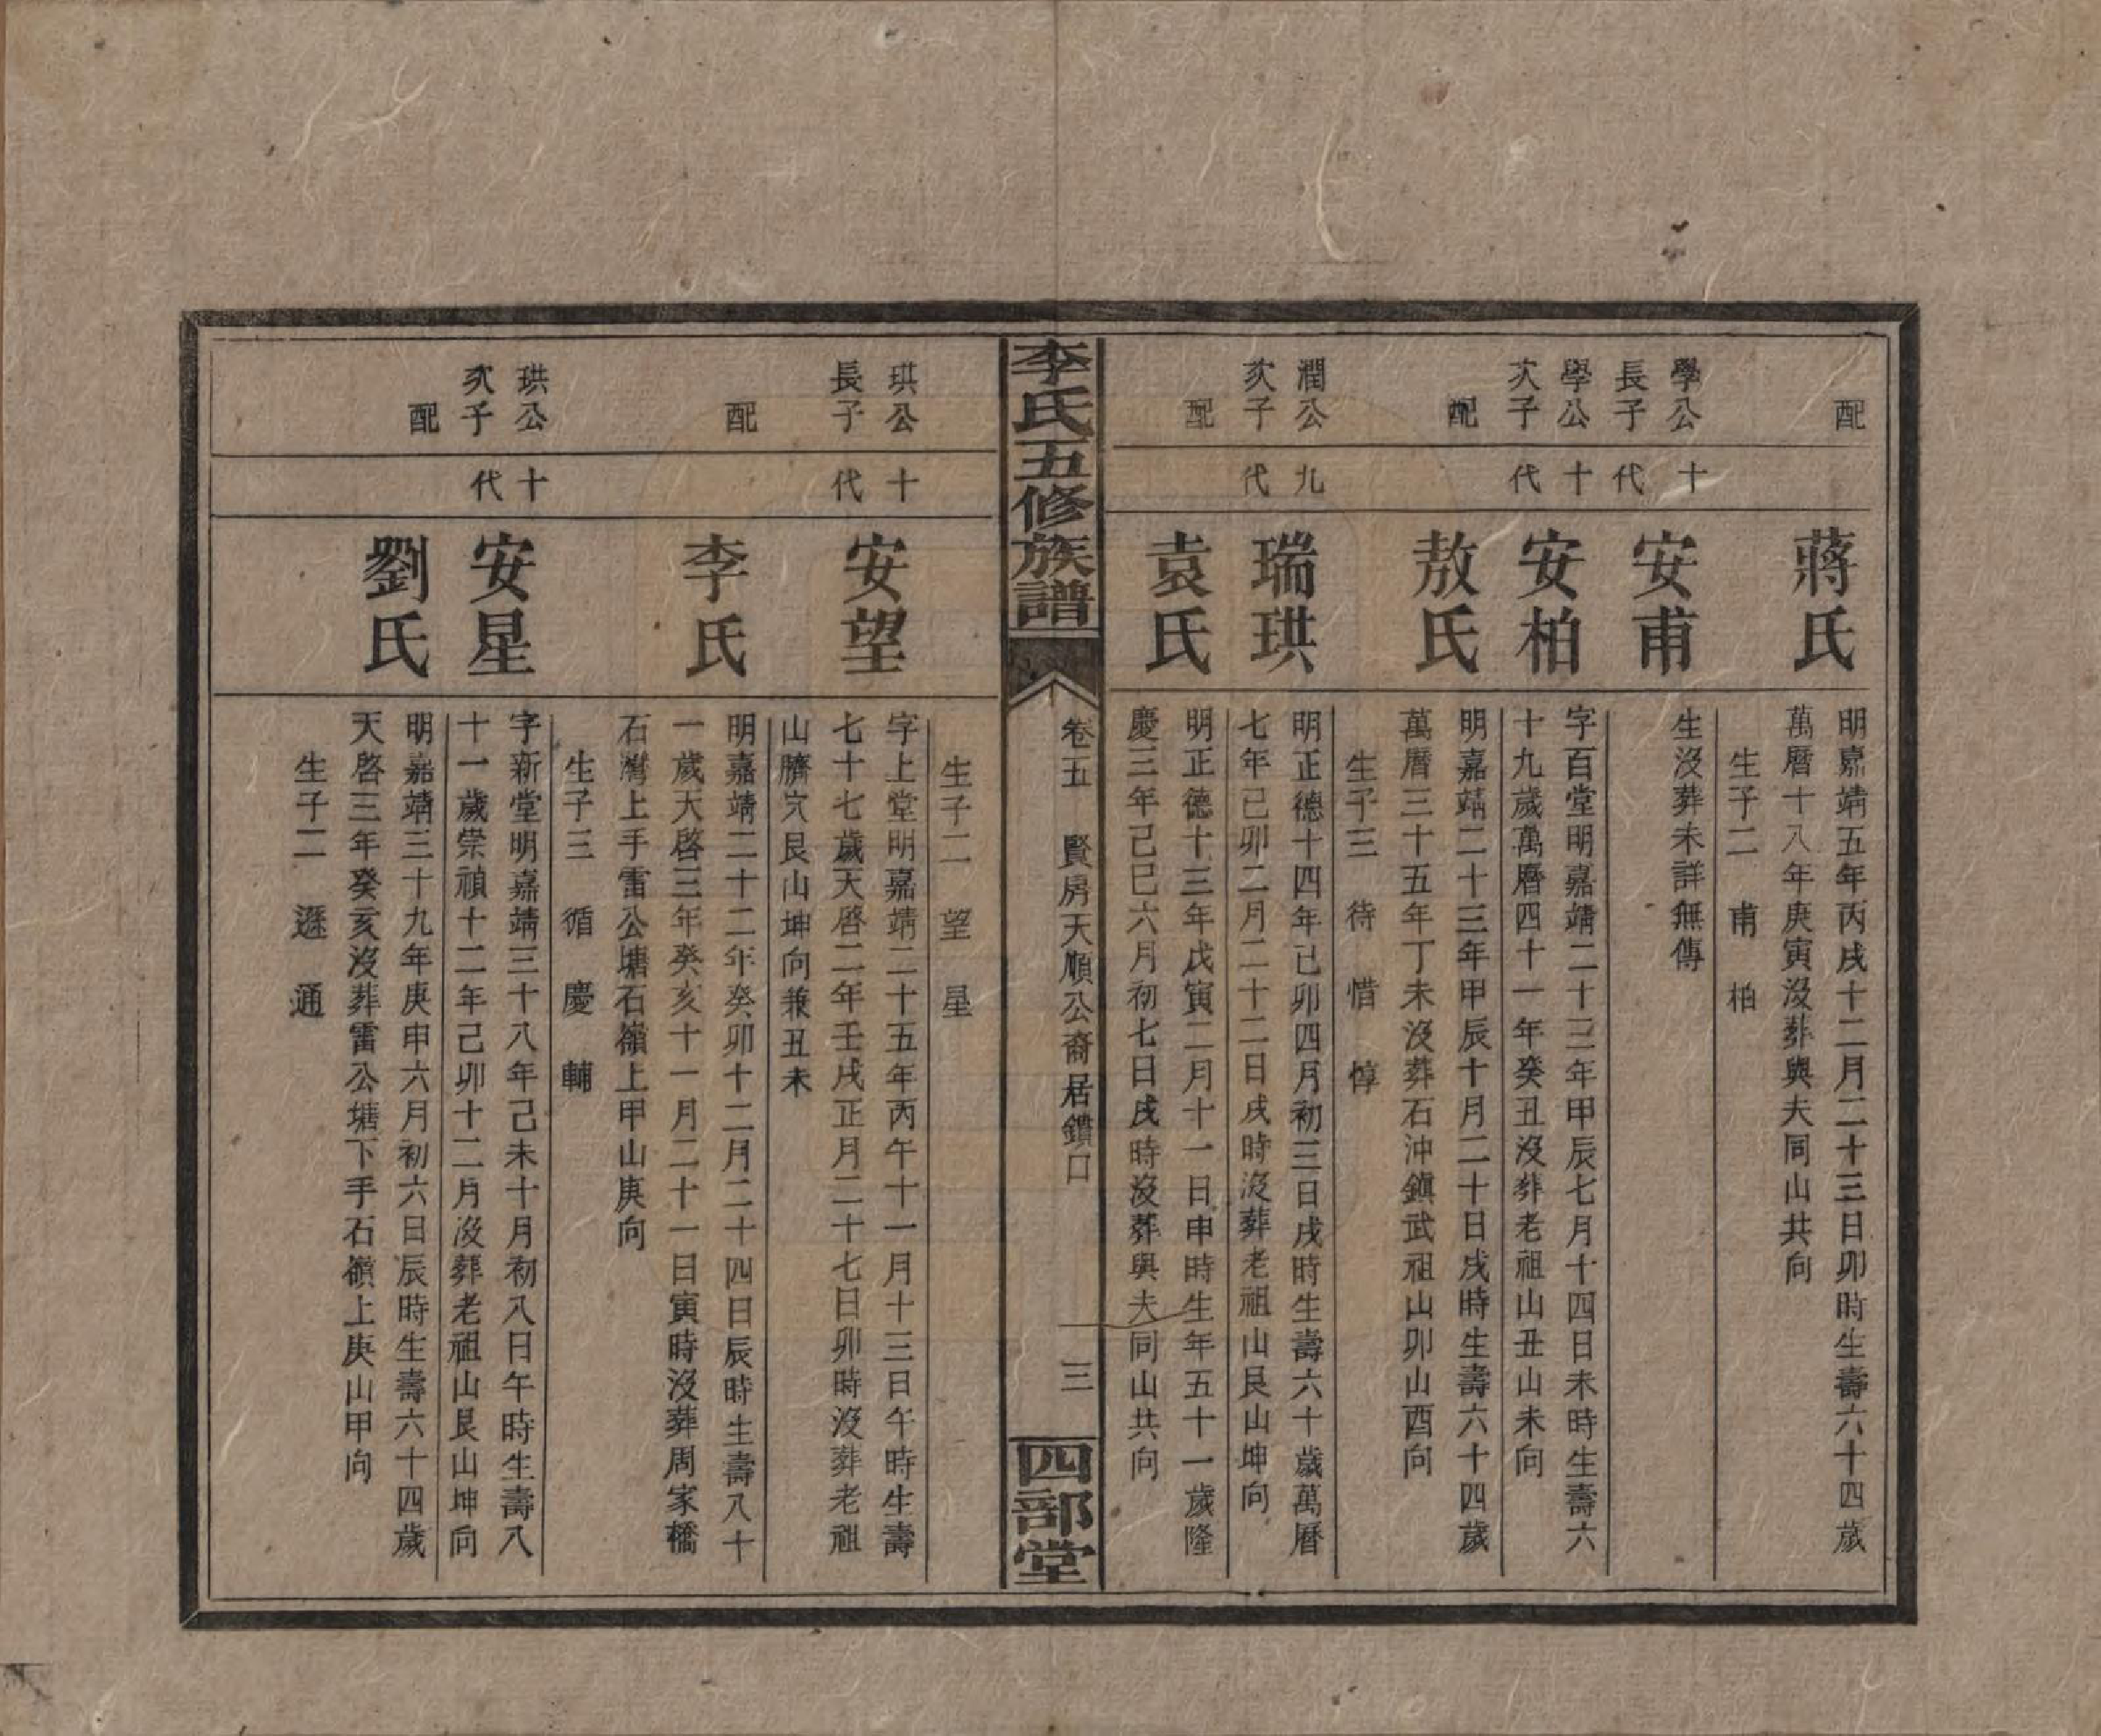 配
蔣氏
明嘉靖五年丙戌十二月二十三日卯時生壽六十四歲
萬曆十八年庚寅沒葬與夫同山共向
生子二 甫 柏
學公
長子
十
代
安甫
生沒葬未詳無傳
學公
次子
十
代
安柏
字百堂明嘉靖二十三年甲辰七月十四日未時生壽六
十九歲萬曆四十一年癸丑沒葬老祖山丑山未向
配
敖氏
明嘉靖二十三年甲辰十月二十日戌時生壽六十四歲
萬曆三十五年丁未沒葬石沖鎮武祖山卯山酉向
生子三 待 惜 惇
潤公
次子
九
代
瑞珙
明正德十四年己卯四月初三日戌時生壽六十歲萬曆
七年己卯二月二十二日戌時沒葬老祖山艮山坤向
配
袁氏
明正德十三年戊寅二月十一日申時生年五十一歲隆
慶三年己巳六月初七日戌時沒葬與夫同山共向
李氏五修族譜
卷五 賢房天順公裔居鑽口
三
四部堂
生子二 望 星
珙公
長子
十
代
安望
字上堂明嘉靖二十五年丙午十一月十三日午時生壽
七十七歲天啓二年壬戌正月二十七日卯時沒葬老祖
山臍穴艮山坤向兼丑未
配
李氏
明嘉靖二十二年癸卯十二月二十四日辰時生壽八十
一歲天啓三年癸亥十一月二十一日寅時沒葬周家橋
石灣上手雷公塘石嶺上甲山庚向
生子三 循 慶 輔
珙公
次子
十
代
安星
字新堂明嘉靖三十八年己未十月初八日午時生壽八
十一歲崇禎十二年己卯十二月沒葬老祖山艮山坤向
配
劉氏
明嘉靖三十九年庚申六月初六日辰時生壽六十四歲
天啓三年癸亥沒葬雷公塘下手石嶺上庚山甲向
生子二 遜 通